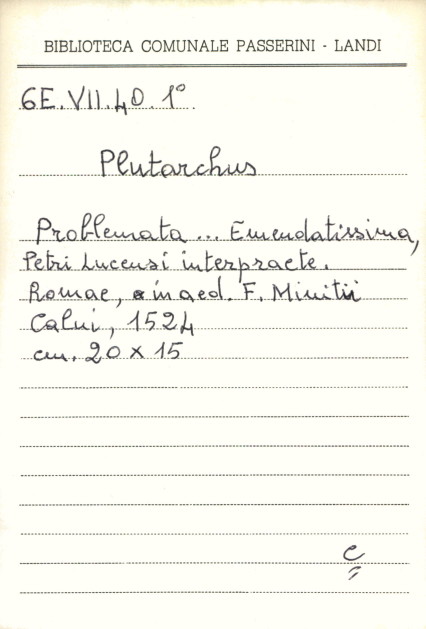 BIBLIOTECA COMUNALE PASSERINI - LANDI
6E.VII.40.1°
Plutarchus
Problemata ... Emendatissima,
Petri Lucensi interpraete.
Romae, in aed. F. Minitii
Calui, 1524
cm. 20 x 15
c